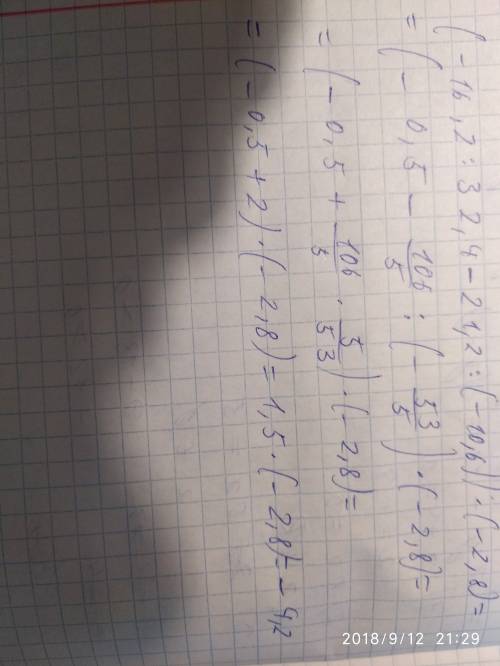 (-16,2:32,4-21,2:(-10,6))·(-2,8)=
=(-0,5-106/5:(-53/5))·(-2,8)=
=(-0,5+106/5·5/53)·(-2,8)=
=(-0,5+2)·(-2,8)=1,5·(-2,8)=-4,2
2018/9/12 21:29